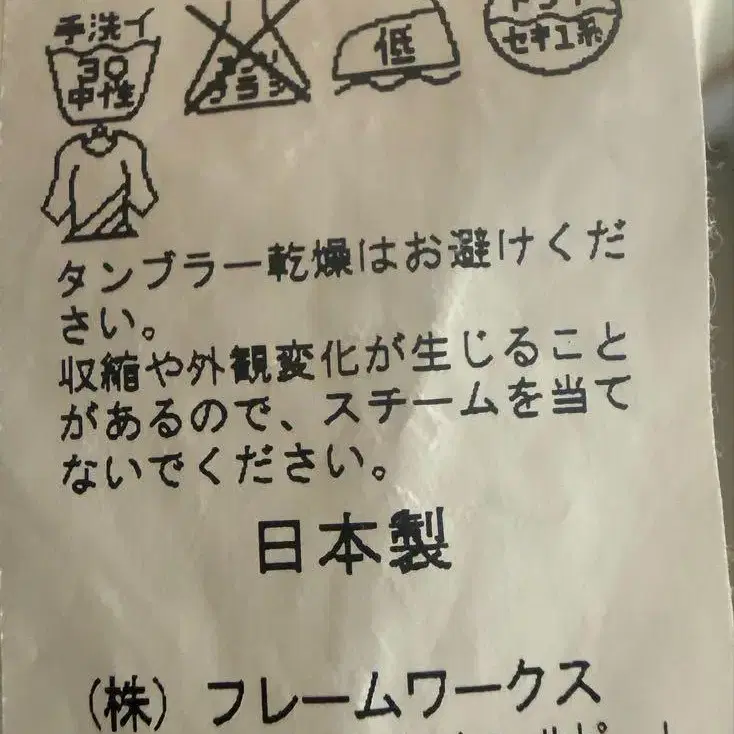 手洗イ
30
中性
エンソ
サラシ
低
ドライ
セキユ系
タンブラー乾燥はお避けくだ
さい。
収縮や外観変化が生じること
があるので、スチームを当て
ないでください。
日本製
(株) フレームワークス